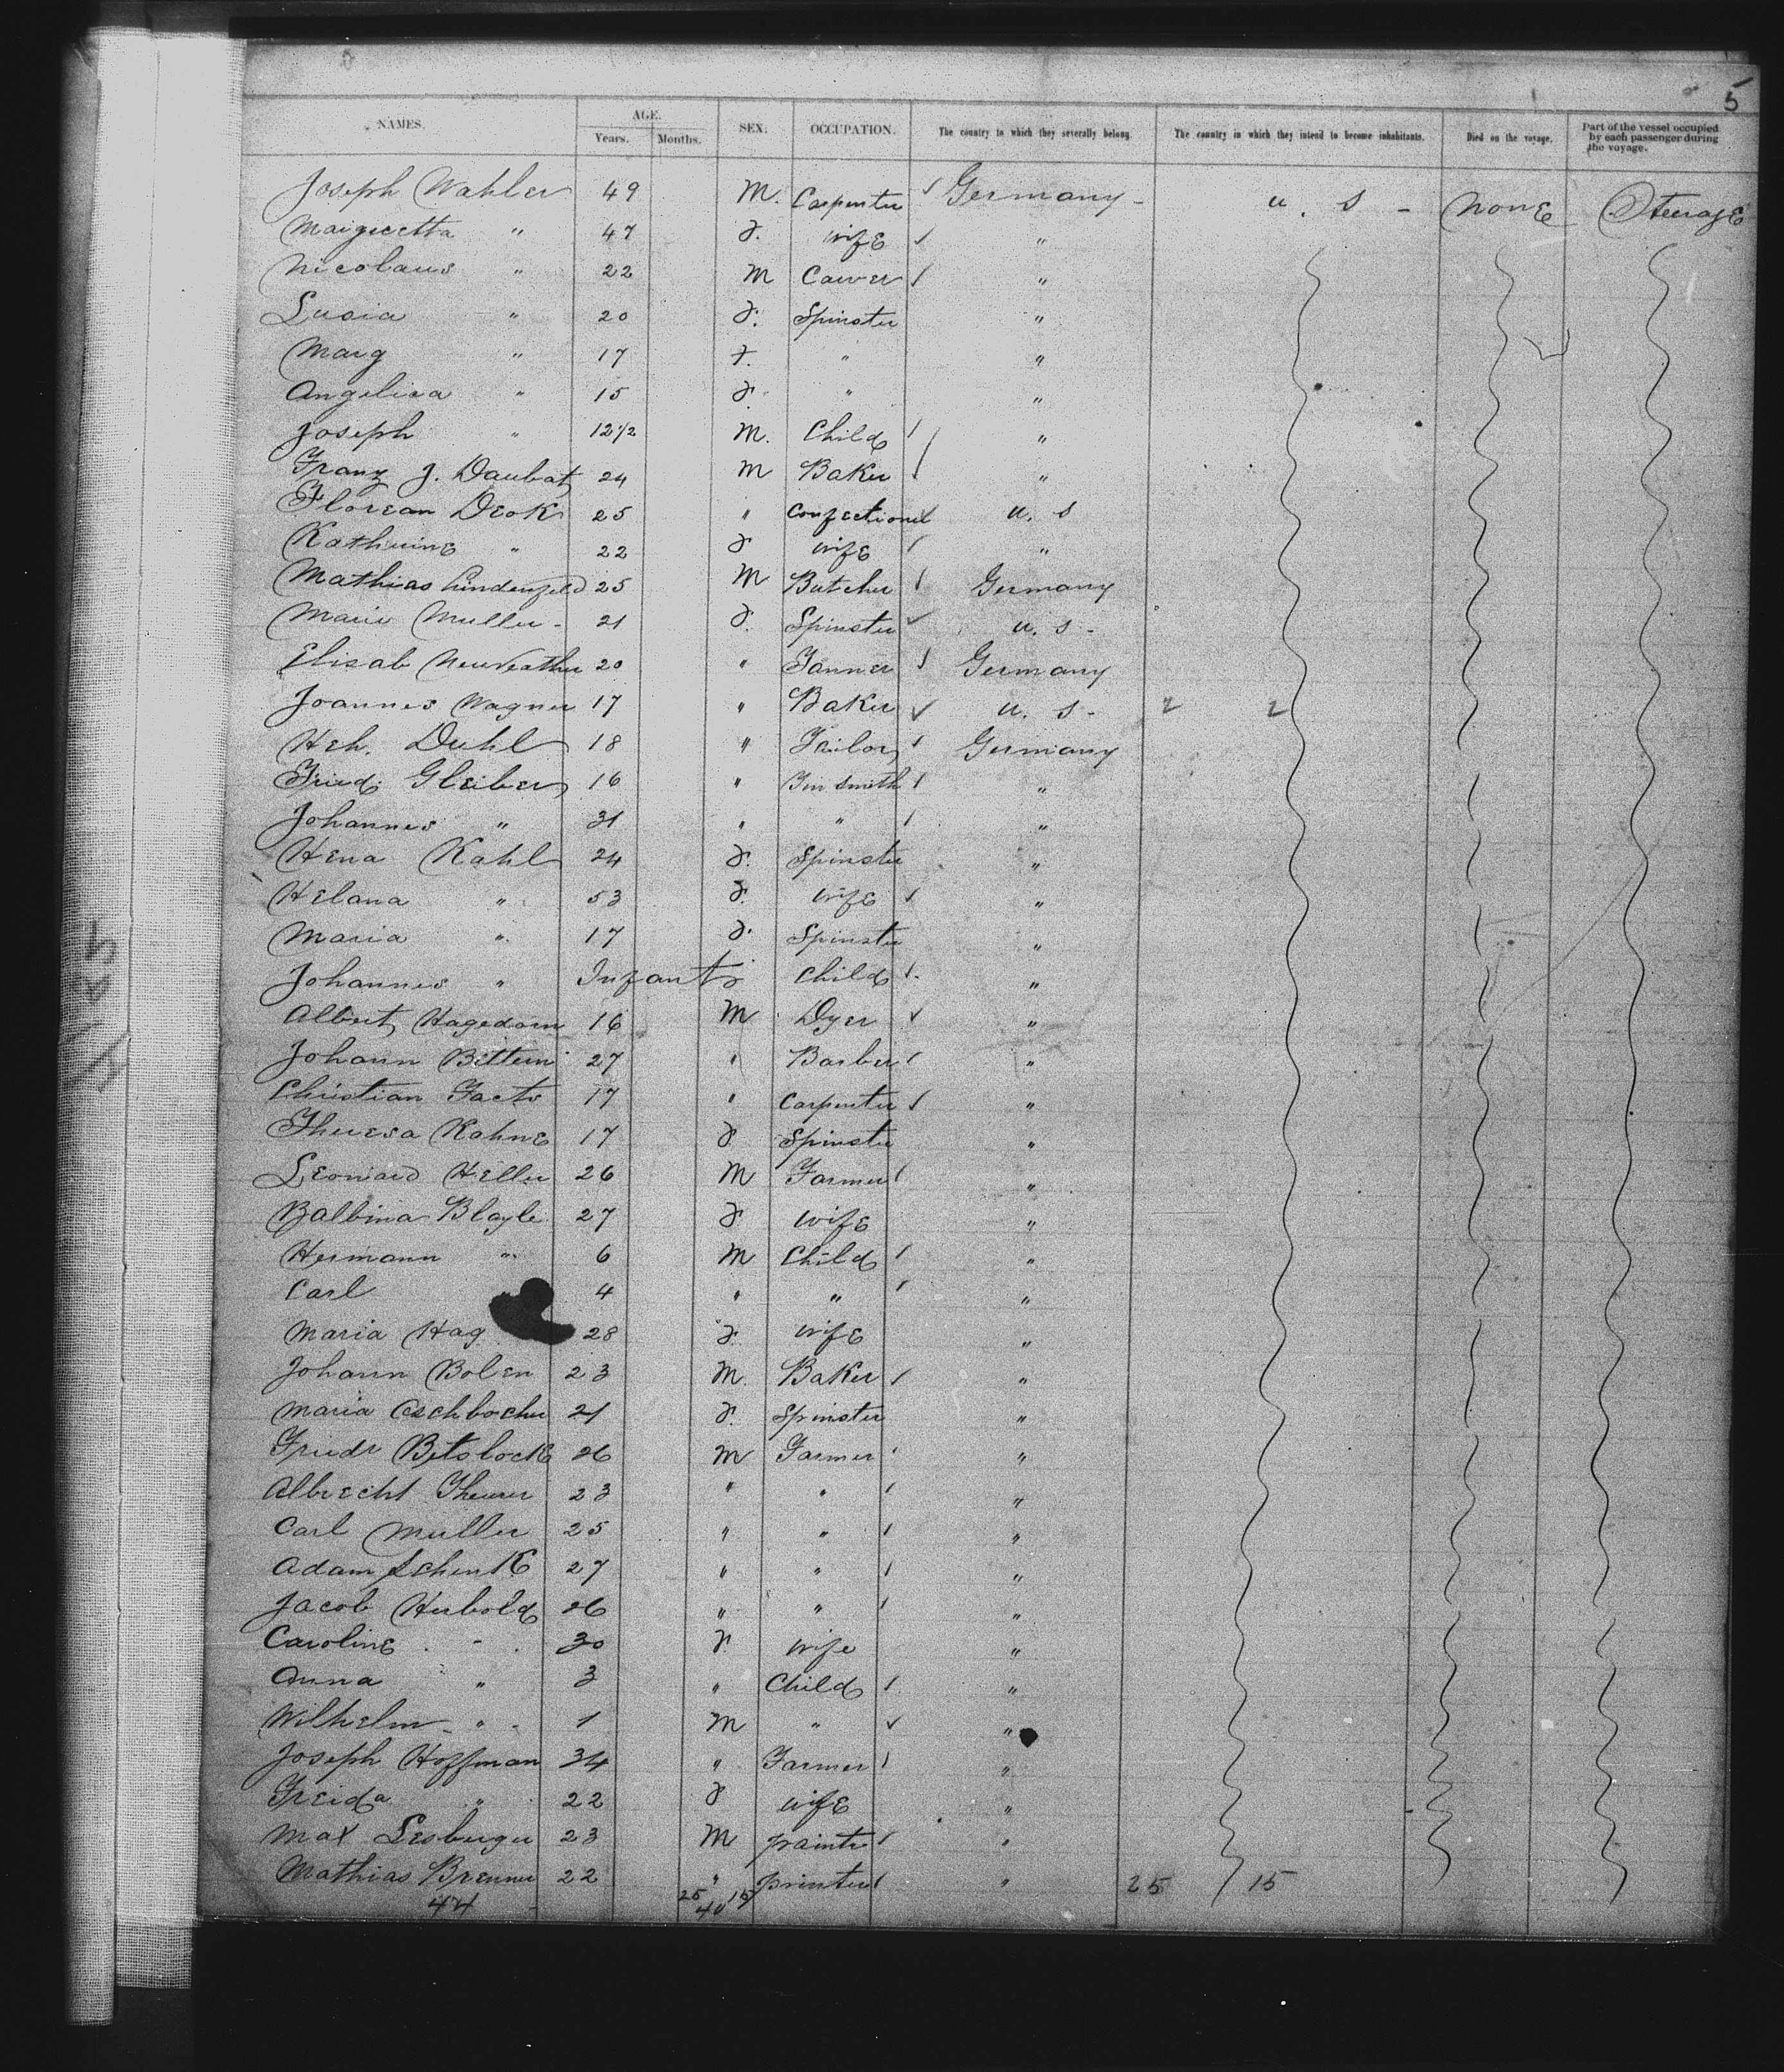 5
NAMES. AGE. Years. Months. SEX. OCCUPATION. The country to which they severally belong. The country in which they intend to become inhabitants. Died on the voyage. Part of the vessel occupied by each passenger during the voyage.
Joseph Wahler 49 M. Carpenter ✓ Germany - U. S - None Steerage
Margretta " 47 F. Wife ✓ "
Nicolaus " 22 M Carver / "
Lusia " 20 F. Spinster "
Marg " 17 F. " "
Angelica " 15 F. " "
Joseph " 12 1/2 M. Child / "
Franz J. Daubat 24 M Baker / "
Florean Deok 25 " Confectioner ✓ U. S
Katherine " 22 F Wife / "
Mathias Lindenfeld 25 M Butcher / Germany
Marie Muller - 21 F. Spinster ✓ U. S -
Elisab 20 " Tanner / Germany
Joannes Wagner 17 " Baker ✓ U. S - 2 2
Hch. Duhl 18 " Tailor / Germany
Fried. Gleiber 16 " Tin Smith / "
Johannes " 31 " " / "
Hena Kahl 24 F. Spinster "
Helana " 53 F. Wife / "
Maria " 17 F. Spinster "
Johannes " Infant Child / "
Albert Hagedorn 16 M Dyer ✓ "
Johann Bittern 27 " Barber / "
Christian Facts 17 " Carpenter / "
Theresa Kahne 17 F Spinster "
Leonard Heller 26 M Farmer / "
Balbina Blayle 27 F Wife "
Hermann " 6 M Child / "
Carl 4 " " / "
Maria Hag 28 F. Wife "
Johann Bolen 23 M. Baker / "
Maria 21 F. Spinster "
Friedr Betslock 26 M Farmer / "
Albrecht Theurer 23 " " / "
Carl Muller 25 " " / "
Adam Schenk 27 " " / "
Jacob Herbold 26 " " / "
Caroline " 30 F. Wife "
Anna " 3 " Child / "
Wilhelm " 1 M " ✓ "
Joseph Hoffman 34 " Farmer / "
Freida " 22 F Wife "
Max Lesberger 23 M painter / "
Mathias Brenner 22 " printer / " 25 15
44 25 15
40